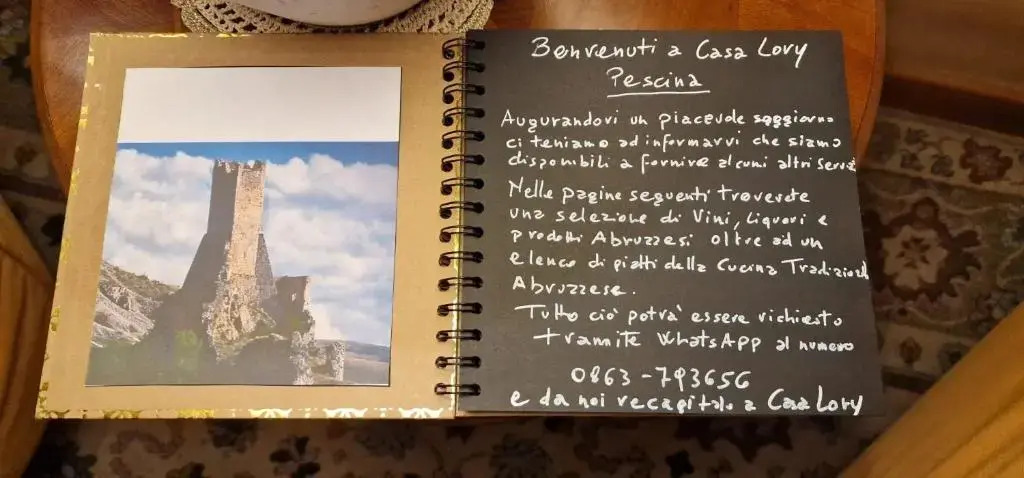 Benvenuti a Casa Lory
Pescina
Augurandovi un piacevole soggiorno
ci teniamo ad informarvi che siamo
disponibili a fornire alcuni altri servizi
Nelle pagine seguenti troverete
una selezione di Vini, Liquori e
prodotti Abruzzesi oltre ad un
elenco di piatti della Cucina Tradizional
Abruzzese.
Tutto cio' potra' essere richiesto
tramite WhatsApp al numero
0863-793656
e da noi recapitato a Casa Lory